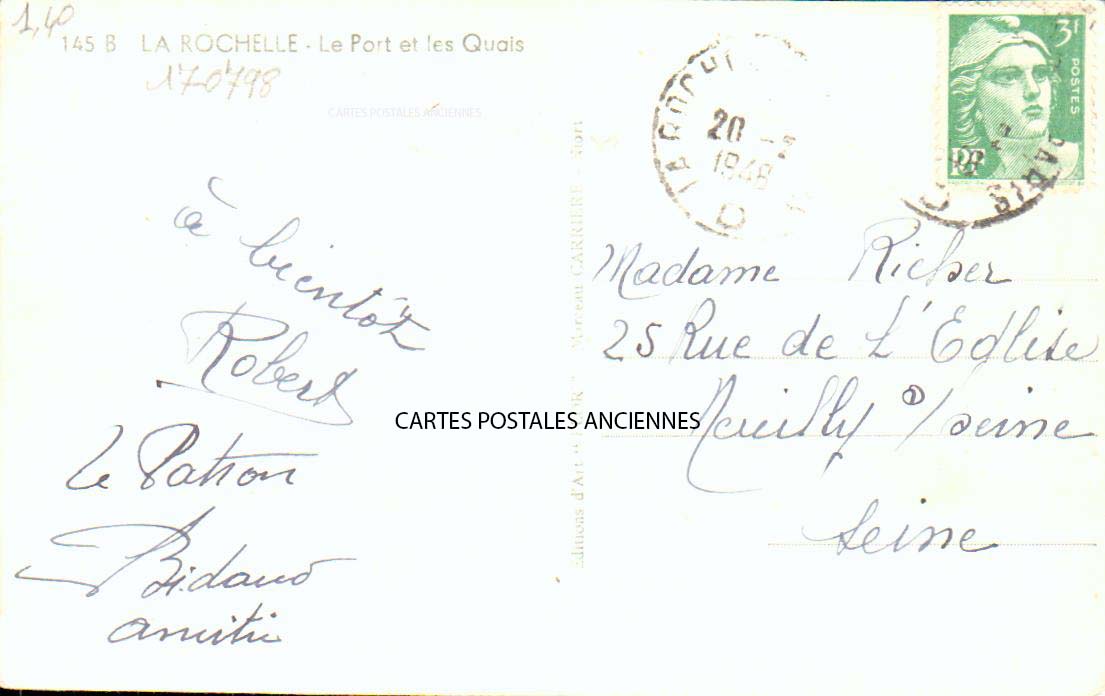 1,40
145 B LA ROCHELLE - Le Port et les Quais
170798
CARTES POSTALES ANCIENNES
à bientôt
Robert
Le Patron
Bidaud
amitié
CARTES POSTALES ANCIENNES
Editions d'Art
Marceau CARRIERE - Niort
LA ROCHE
20 - 2
1948
3F
POSTES
RF
PARIS
Madame Richer
25 Rue de L'Eglise
Neuilly s/seine
Seine